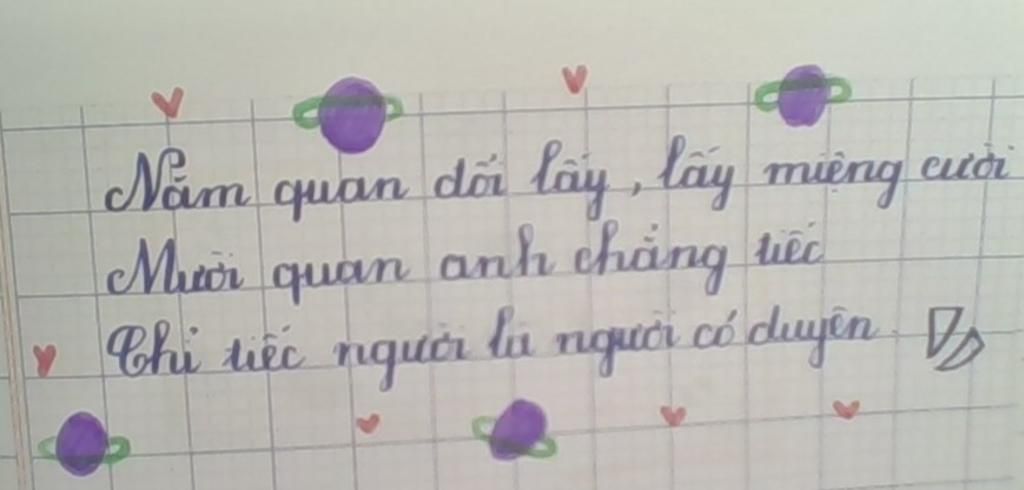 Năm quan dối lấy, lấy miệng cười
Mười quan anh chẳng tiếc
Chỉ tiếc người là người có duyên.